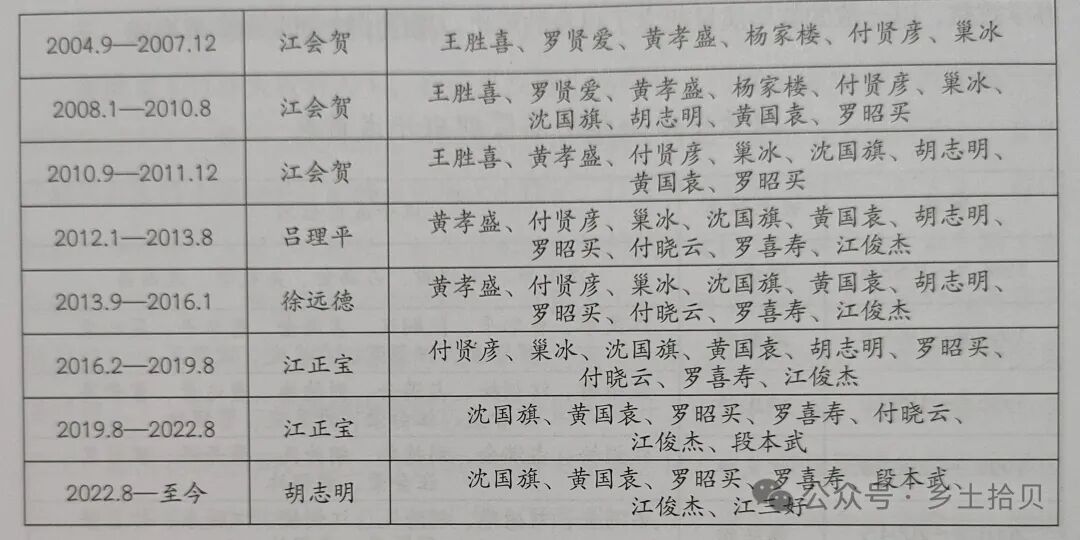 2004.9—2007.12 江会贺 王胜喜、罗贤爱、黄孝盛、杨家楼、付贤彦、巢冰
2008.1—2010.8 江会贺 王胜喜、罗贤爱、黄孝盛、杨家楼、付贤彦、巢冰、
沈国旗、胡志明、黄国袁、罗昭买
2010.9—2011.12 江会贺 王胜喜、黄孝盛、付贤彦、巢冰、沈国旗、胡志明、
黄国袁、罗昭买
2012.1—2013.8 吕理平 黄孝盛、付贤彦、巢冰、沈国旗、黄国袁、胡志明、
罗昭买、付晓云、罗喜寿、江俊杰
2013.9—2016.1 徐远德 黄孝盛、付贤彦、巢冰、沈国旗、黄国袁、胡志明、
罗昭买、付晓云、罗喜寿、江俊杰
2016.2—2019.8 江正宝 付贤彦、巢冰、沈国旗、黄国袁、胡志明、罗昭买、
付晓云、罗喜寿、江俊杰
2019.8—2022.8 江正宝 沈国旗、黄国袁、罗昭买、罗喜寿、付晓云、
江俊杰、段本武
2022.8—至今 胡志明 沈国旗、黄国袁、罗昭买、罗喜寿、段本武、
江俊杰、江三好
公众号·乡土拾贝